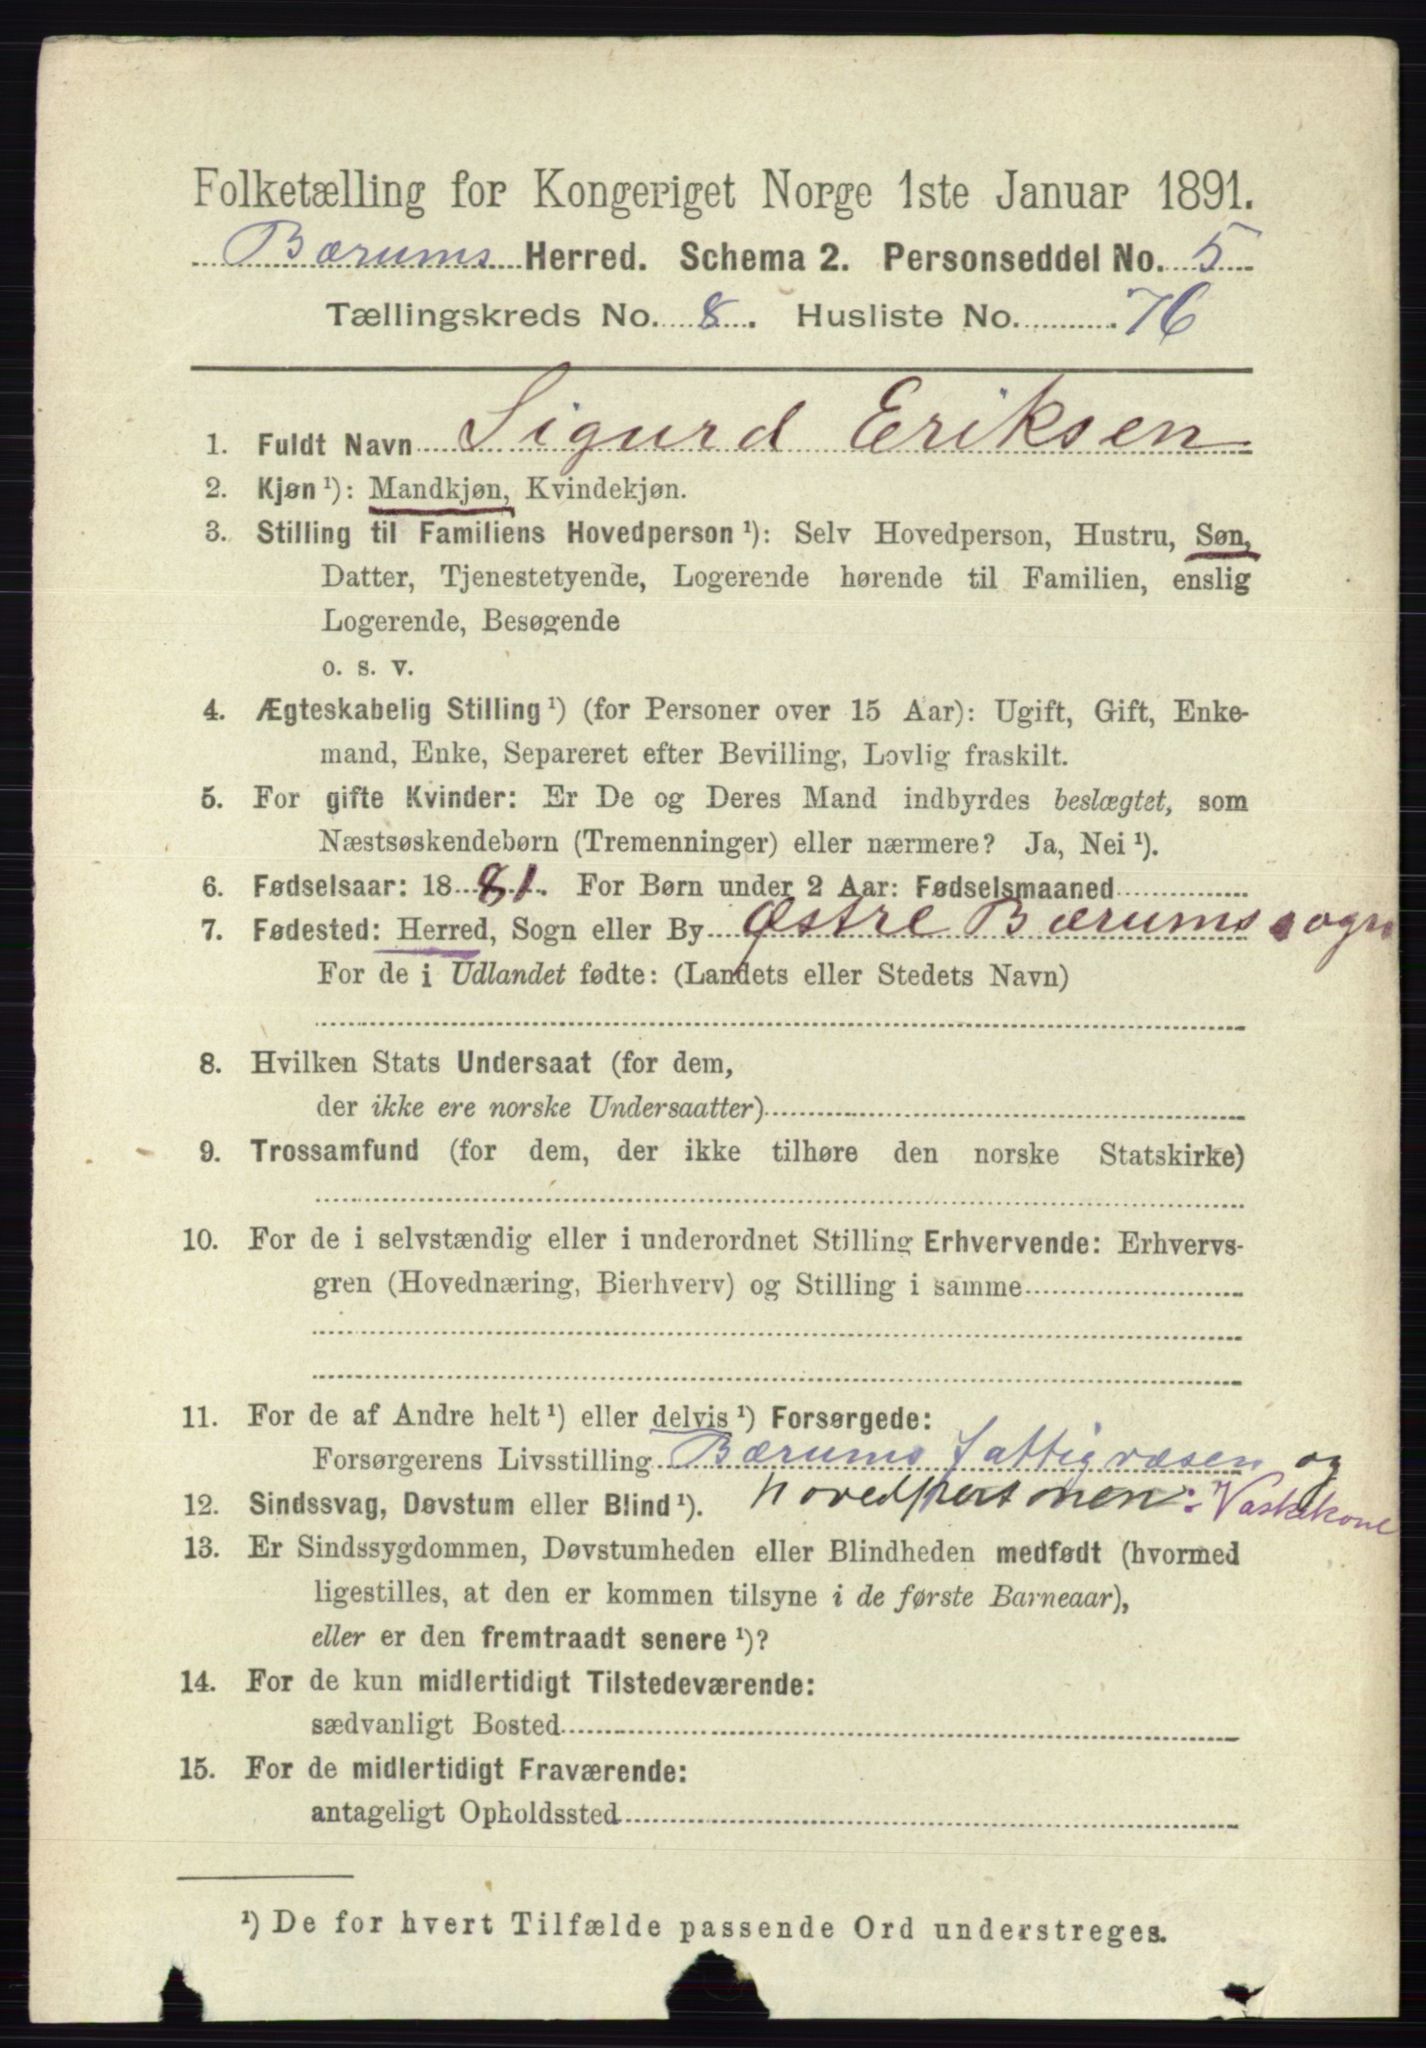 Folketælling for Kongeriget Norge 1ste Januar 1891.
Bærums Herred. Schema 2. Personseddel No. 5
Tællingskreds No. 8. Husliste No. 76
1. Fuldt Navn Sigurd Eriksen
2. Kjøn ¹): Mandkjøn, Kvindekjøn.
3. Stilling til Familiens Hovedperson ¹): Selv Hovedperson, Hustru, Søn,
Datter, Tjenestetyende, Logerende hørende til Familien, enslig
Logerende, Besøgende
o. s. v.
4. Ægteskabelig Stilling ¹) (for Personer over 15 Aar): Ugift, Gift, Enke-
mand, Enke, Separeret efter Bevilling, Lovlig fraskilt.
5. For gifte Kvinder: Er De og Deres Mand indbyrdes beslægtet, som
Næstsøskendebørn (Tremenninger) eller nærmere? Ja, Nei ¹).
6. Fødselsaar: 1881. For Børn under 2 Aar: Fødselsmaaned
7. Fødested: Herred, Sogn eller By Østre Bærums sogn
For de i Udlandet fødte: (Landets eller Stedets Navn)
8. Hvilken Stats Undersaat (for dem,
der ikke ere norske Undersaatter)
9. Trossamfund (for dem, der ikke tilhøre den norske Statskirke)
10. For de i selvstændig eller i underordnet Stilling Erhvervende: Erhvervs-
gren (Hovednæring, Bierhverv) og Stilling i samme
11. For de af Andre helt ¹) eller delvis ¹) Forsørgede:
Forsørgerens Livsstilling Bærums Fattigvæsen og
12. Sindssvag, Døvstum eller Blind ¹). hovedpersonen: Vaskekone
13. Er Sindssygdommen, Døvstumheden eller Blindheden medfødt (hvormed
ligestilles, at den er kommen tilsyne i de første Barneaar),
eller er den fremtraadt senere ¹)?
14. For de kun midlertidigt Tilstedeværende:
sædvanligt Bosted
15. For de midlertidigt Fraværende:
antageligt Opholdssted
¹) De for hvert Tilfælde passende Ord understreges.